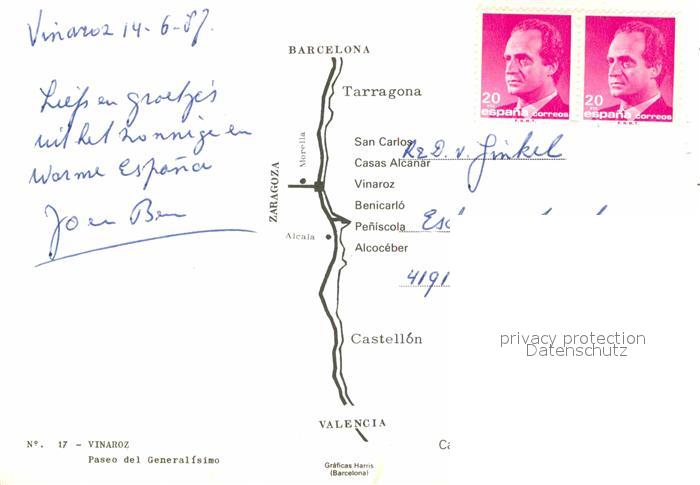 Vinaroz 14-6-87.
Liefs en groetjes
uit het zonnige en
warme España
Jo en Ben
BARCELONA
Tarragona
San Carlos
Casas Alcanar
Vinaroz
Benicarló
Peñíscola
Alcocéber
Morella
ZARAGOZA
Alcala
Castellón
VALENCIA
Nº. 17 - VINAROZ
Paseo del Generalísimo
Gráficas Harris
(Barcelona)
20 PTA
españa correos
F.N.M.T.
20 PTA
españa correos
F.N.M.T.
v. Ginkel
4191
privacy protection
Datenschutz